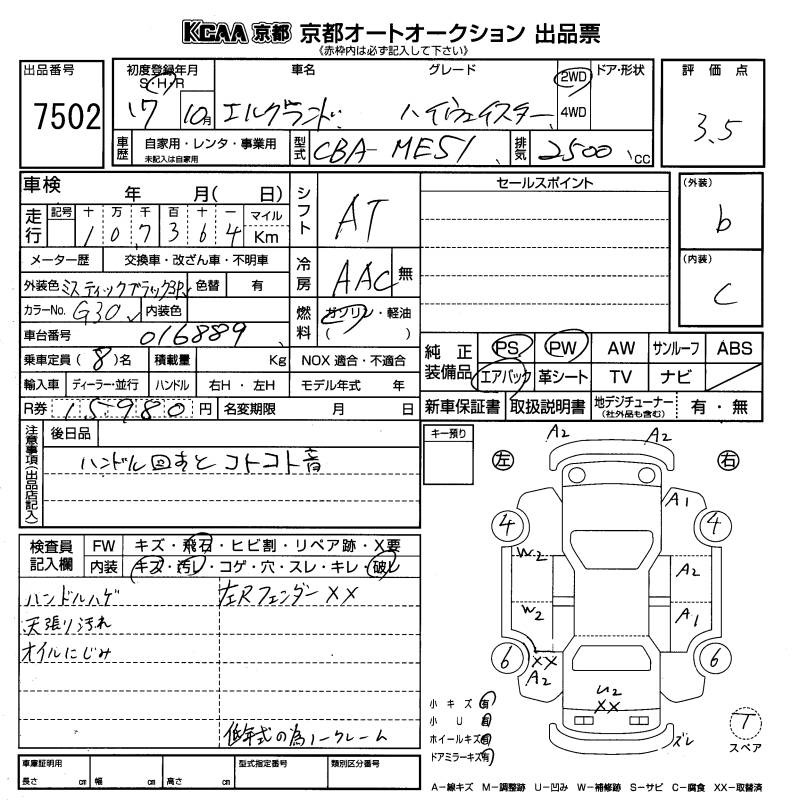 KCAA 京都 京都オートオークション 出品票
《赤枠内は必ず記入して下さい》
出品番号
7502
初度登録年月 車名 グレード ドア・形状
S・H・R
17 10月 エルグランド ハイウェイスター 2WD
4WD
車歴 自家用・レンタ・事業用
未記入は自家用
型式 CBA-ME51 排気 2500 CC
評価点
3.5
車検 年 月( 日)
走行 記号 十 万 千 百 十 一 マイル
1 0 7 3 6 4 Km
メーター歴 交換車・改ざん車・不明車
外装色 ミスティックブラック3P 色替 有
カラーNo. G30 内装色
車台番号 016889
乗車定員 ( 8 ) 名 積載量 Kg
輸入車 ディーラー・並行 ハンドル 右H・左H
R券 15980 円 名変期限 月 日
シフト AT
冷房 AAC 無
燃料 ガソリン・軽油
( )
NOX 適合・不適合
モデル年式 年
セールスポイント
(外装)
b
(内装)
C
純正装備品 PS PW AW サンルーフ ABS
エアバック 革シート TV ナビ
新車保証書 取扱説明書 地デジチューナー 有・無
(社外品も含む)
注意事項(出品店記入) 後日品
ハンドル回すと コトコト音
検査員記入欄 FW キズ・飛石・ヒビ割・リペア跡・X要
内装 キズ・汚レ・コゲ・穴・スレ・キレ・破レ
ハンドルハゲ 左Rフェンダー XX
天張り汚れ
オイルにじみ
低年式の為ノークレーム
車庫証明用
長さ cm 幅 cm 高さ cm
型式指定番号 類別区分番号
キー預り
左 右
A2 A2
A1
4 4
W2 A2
W2 A1
6 6
XX
A2
U2
XX
ズレ
小キズ 有
小U 有
ホイールキズ 有
ドアミラーキズ 有
T
スペア
A-線キズ M-調整跡 U-凹み W-補修跡 S-サビ C-腐食 XX-取替済